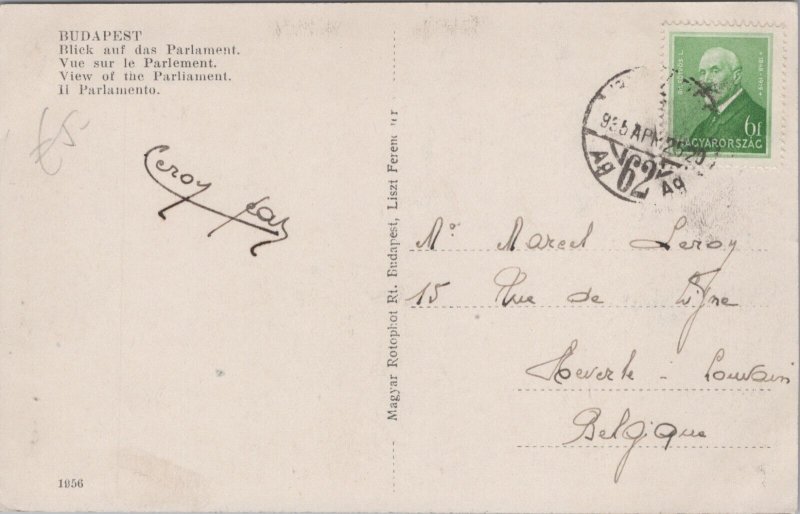 BUDAPEST
Blick auf das Parlament.
Vue sur le Parlement.
View of the Parliament.
Il Parlamento.
£5-
Leroy
1956
Magyar Rotophot Rt. Budapest, Liszt Ferenc
B. EÖTVÖS L.
1848-1919
6f
MAGYARORSZÁG
935 APR 25 20
Ag 62 Ag
Mr Marcel Leroy
15 Rue de Ligne
Heverlé - Louvain
Belgique